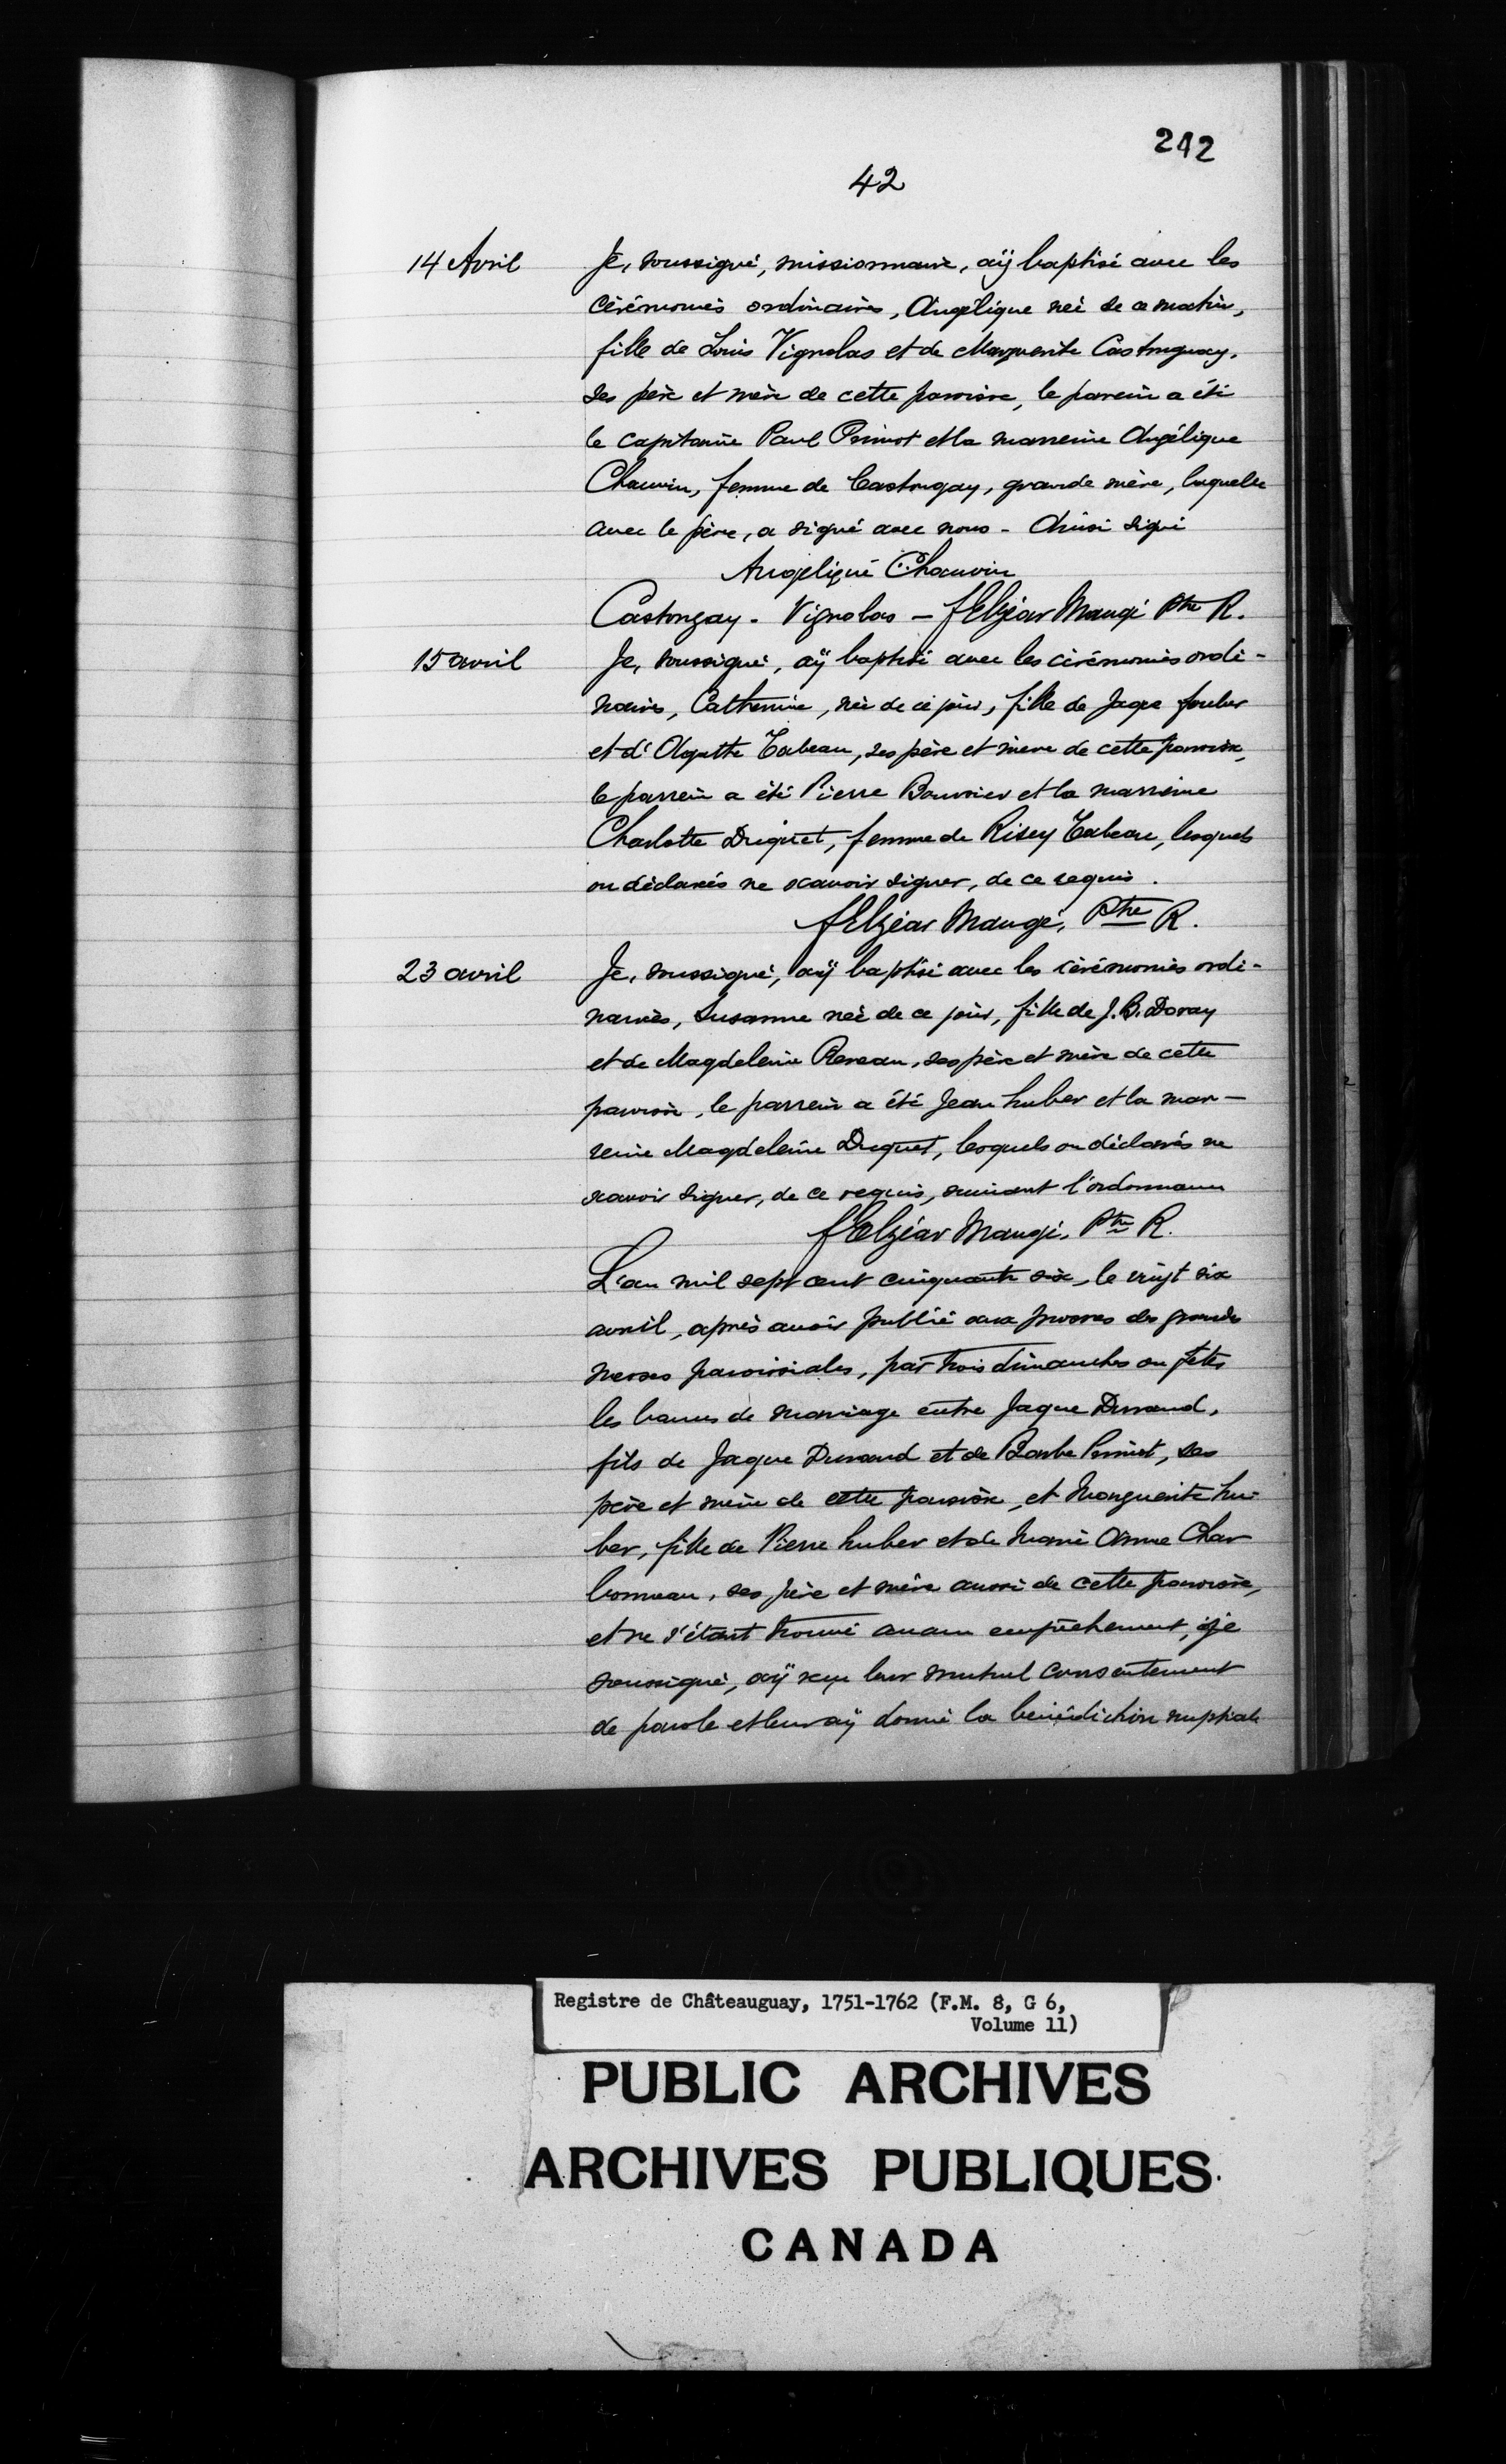 242
42
14 Avril
Je, soussigné, missionnaire, aÿ baptisé avec les
cérémonies ordinaires, Angélique née de ce matin,
fille de Louis Vignolas et de Marguerite Castonguay,
ses père et mère de cette paroisse, le parein a été
le capitaine Paul Primot et la mareine Angélique
Chauvin, femme de Castongay, grande mère, laquelle
avec le père, a signé avec nous - Ainsi signé
Angeliqué Chauvin
Castongay - Vignolas - f Elzéar Maugé Ptre R.
15 avril
Je, soussigné, aÿ baptisé avec les cérémonies ordi-
naires, Catherine, née de ce jour, fille de Jaque fouber
et d'Agatte Tabeau, ses père et mère de cette paroisse,
le parrein a été Pierre Bourrier et la marreine
Charlotte Duquet, femme de Risey Tabeau, lesquels
on déclarés ne scavoir signer, de ce requis.
f Elzéar Maugé, Ptre R.
23 avril
Je, soussigné, aÿ baptisé avec les cérémonies ordi-
naires, Susanne née de ce jour, fille de J. B. Doray
et de Magdeleine Reneau, ses père et mère de cette
paroisse, le parrein a été Jean huber et la mar-
reine Magdeleine Duquet, lesquels on déclarés ne
scavoir signer, de ce requis, suivant l'ordonnance
f Elzéar Maugé, Ptre R.
L'an mil sept cent cinquante six, le vingt six
avril, après avoir publié aux prosnes des grandes
messes paroissiales, par trois dimanches ou fêtes
les bancs de mariage entre Jaque Durand,
fils de Jaque Durand et de Barbe Primot, ses
père et mère de cette paroisse, et Marguerite hu-
ber, fille de Pierre huber et de Marie Anne Char
bonneau, ses père et mère aussi de cette paroisse,
et ne s'étant trouvé aucun empêchement, je
soussigné, aÿ reçu leur mutuel consentement
de parole et leur aÿ donné la bénédiction nuptiale
Registre de Châteauguay, 1751-1762 (F.M. 8, G 6,
Volume 11)
PUBLIC ARCHIVES
ARCHIVES PUBLIQUES
CANADA